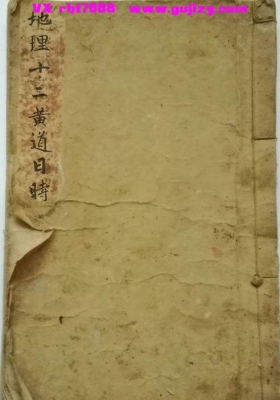 VX:rbf7088 www.gujizg.com
地理十二黃道日時